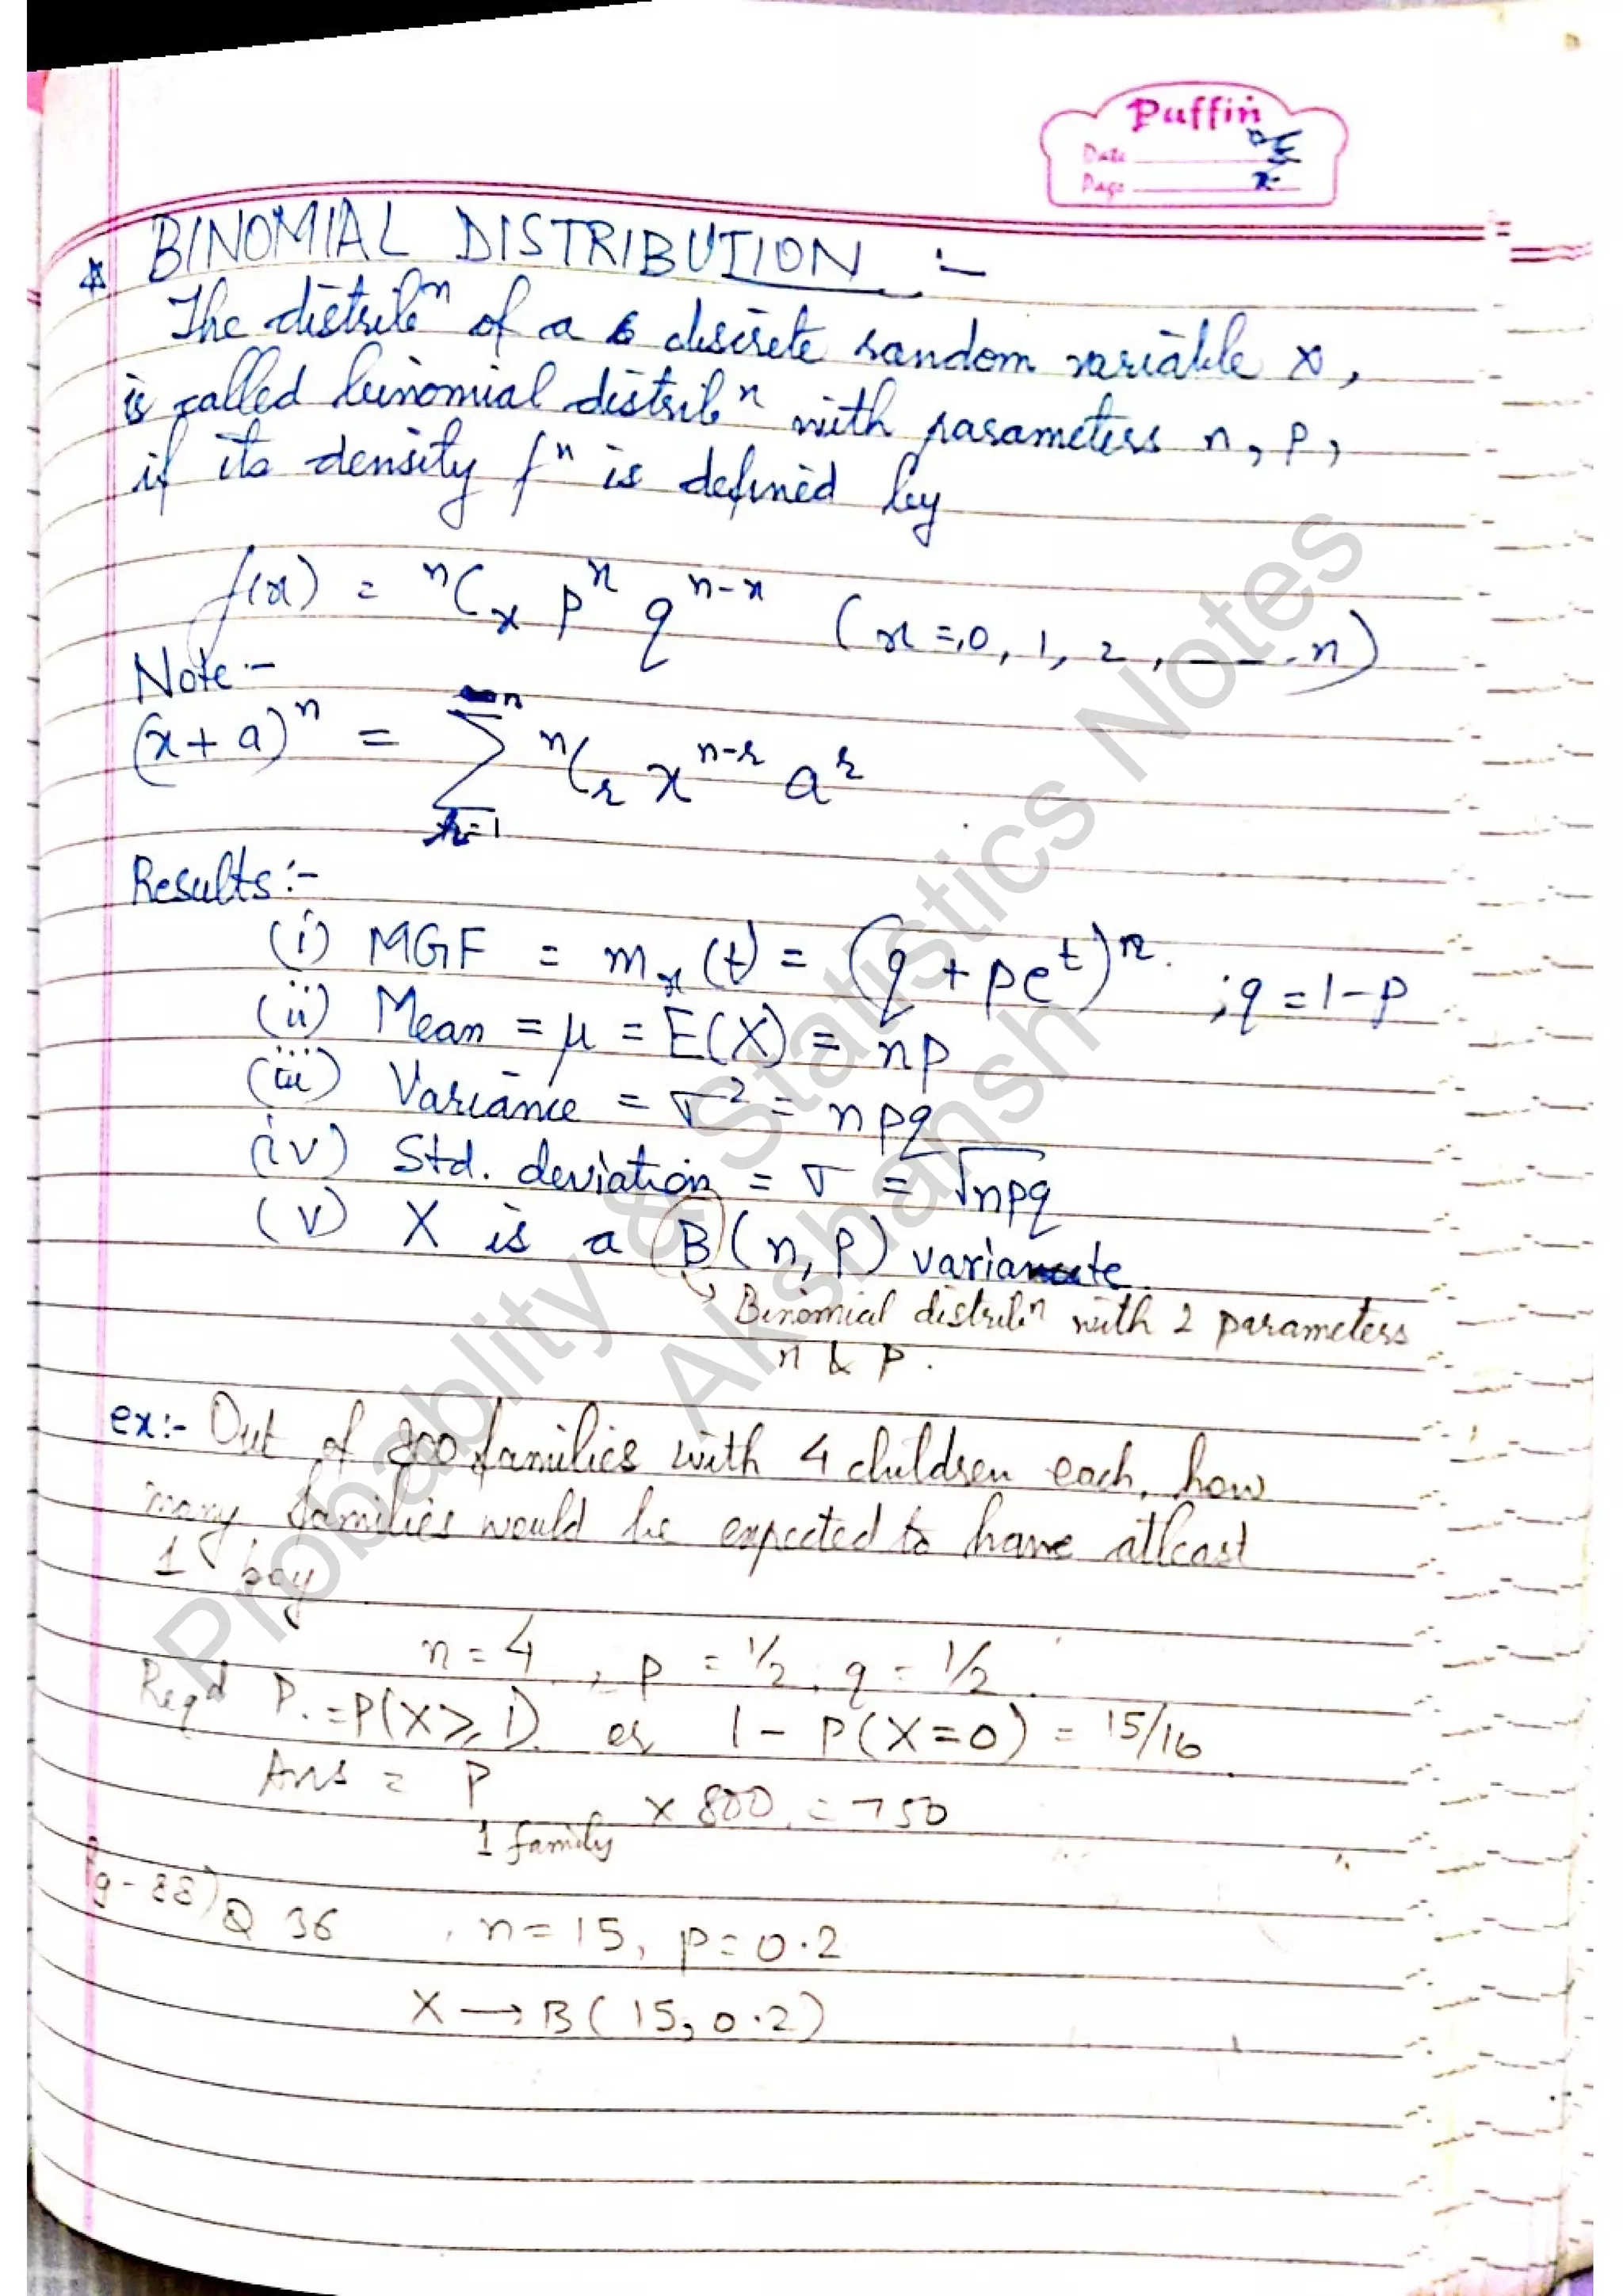 Puffin
Date
Page
☆ BINOMIAL DISTRIBUTION :-
The distribⁿ of a discrete random variable X,
is called binomial distribⁿ with parameters n, p,
if its density fⁿ is defined by
f(x) = ⁿCₓ pˣ qⁿ⁻ˣ (x = 0, 1, 2, ---- n)
Note:-
(x + a)ⁿ = Σ ⁿCᵣ xⁿ⁻ʳ aʳ
n
r=1
Results:-
(i) MGF = mₓ(t) = (q + peᵗ)ⁿ ; q = 1-p
(ii) Mean = μ = E(X) = np
(iii) Variance = σ² = npq
(iv) Std. deviation = σ = √npq
(v) X is a B(n, p) variate.
Binomial distribⁿ with 2 parameters
n & p.
ex:- Out of 800 families with 4 children each, how
many families would be expected to have atleast
1 boy
n = 4, p = 1/2, q = 1/2.
Reqd P. = P(X ≥ 1) or 1 - P(X=0) = 15/16
Ans = P 1 family × 800 = 750
g-88) Q 36 n = 15, p = 0.2
X → B(15, 0.2)
Probablity & Statistics Notes
Akshansh